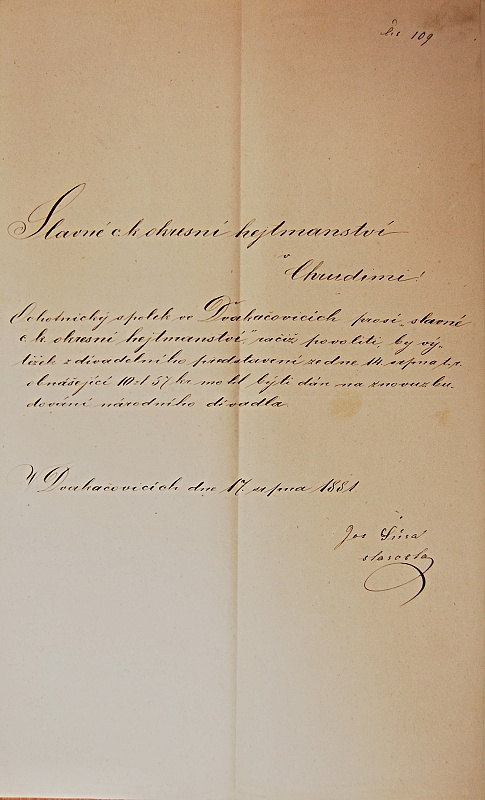 Čís 109
Slavné c. k. okresní hejtmanství
v
Chrudimi!
Ochotnický spolek ve Dvakačovicích prosí „slavné
c. k. okresní hejtmanství" račiž povoliti, by vý-
těžek z divadelního představení ze dne 14. srpna t. r.
obnášející 10 zl 57 kr mohl býti dán na znovuzbu-
dování národního divadla.
V Dvakačovicích dne 17. srpna 1881
Jos
starosta